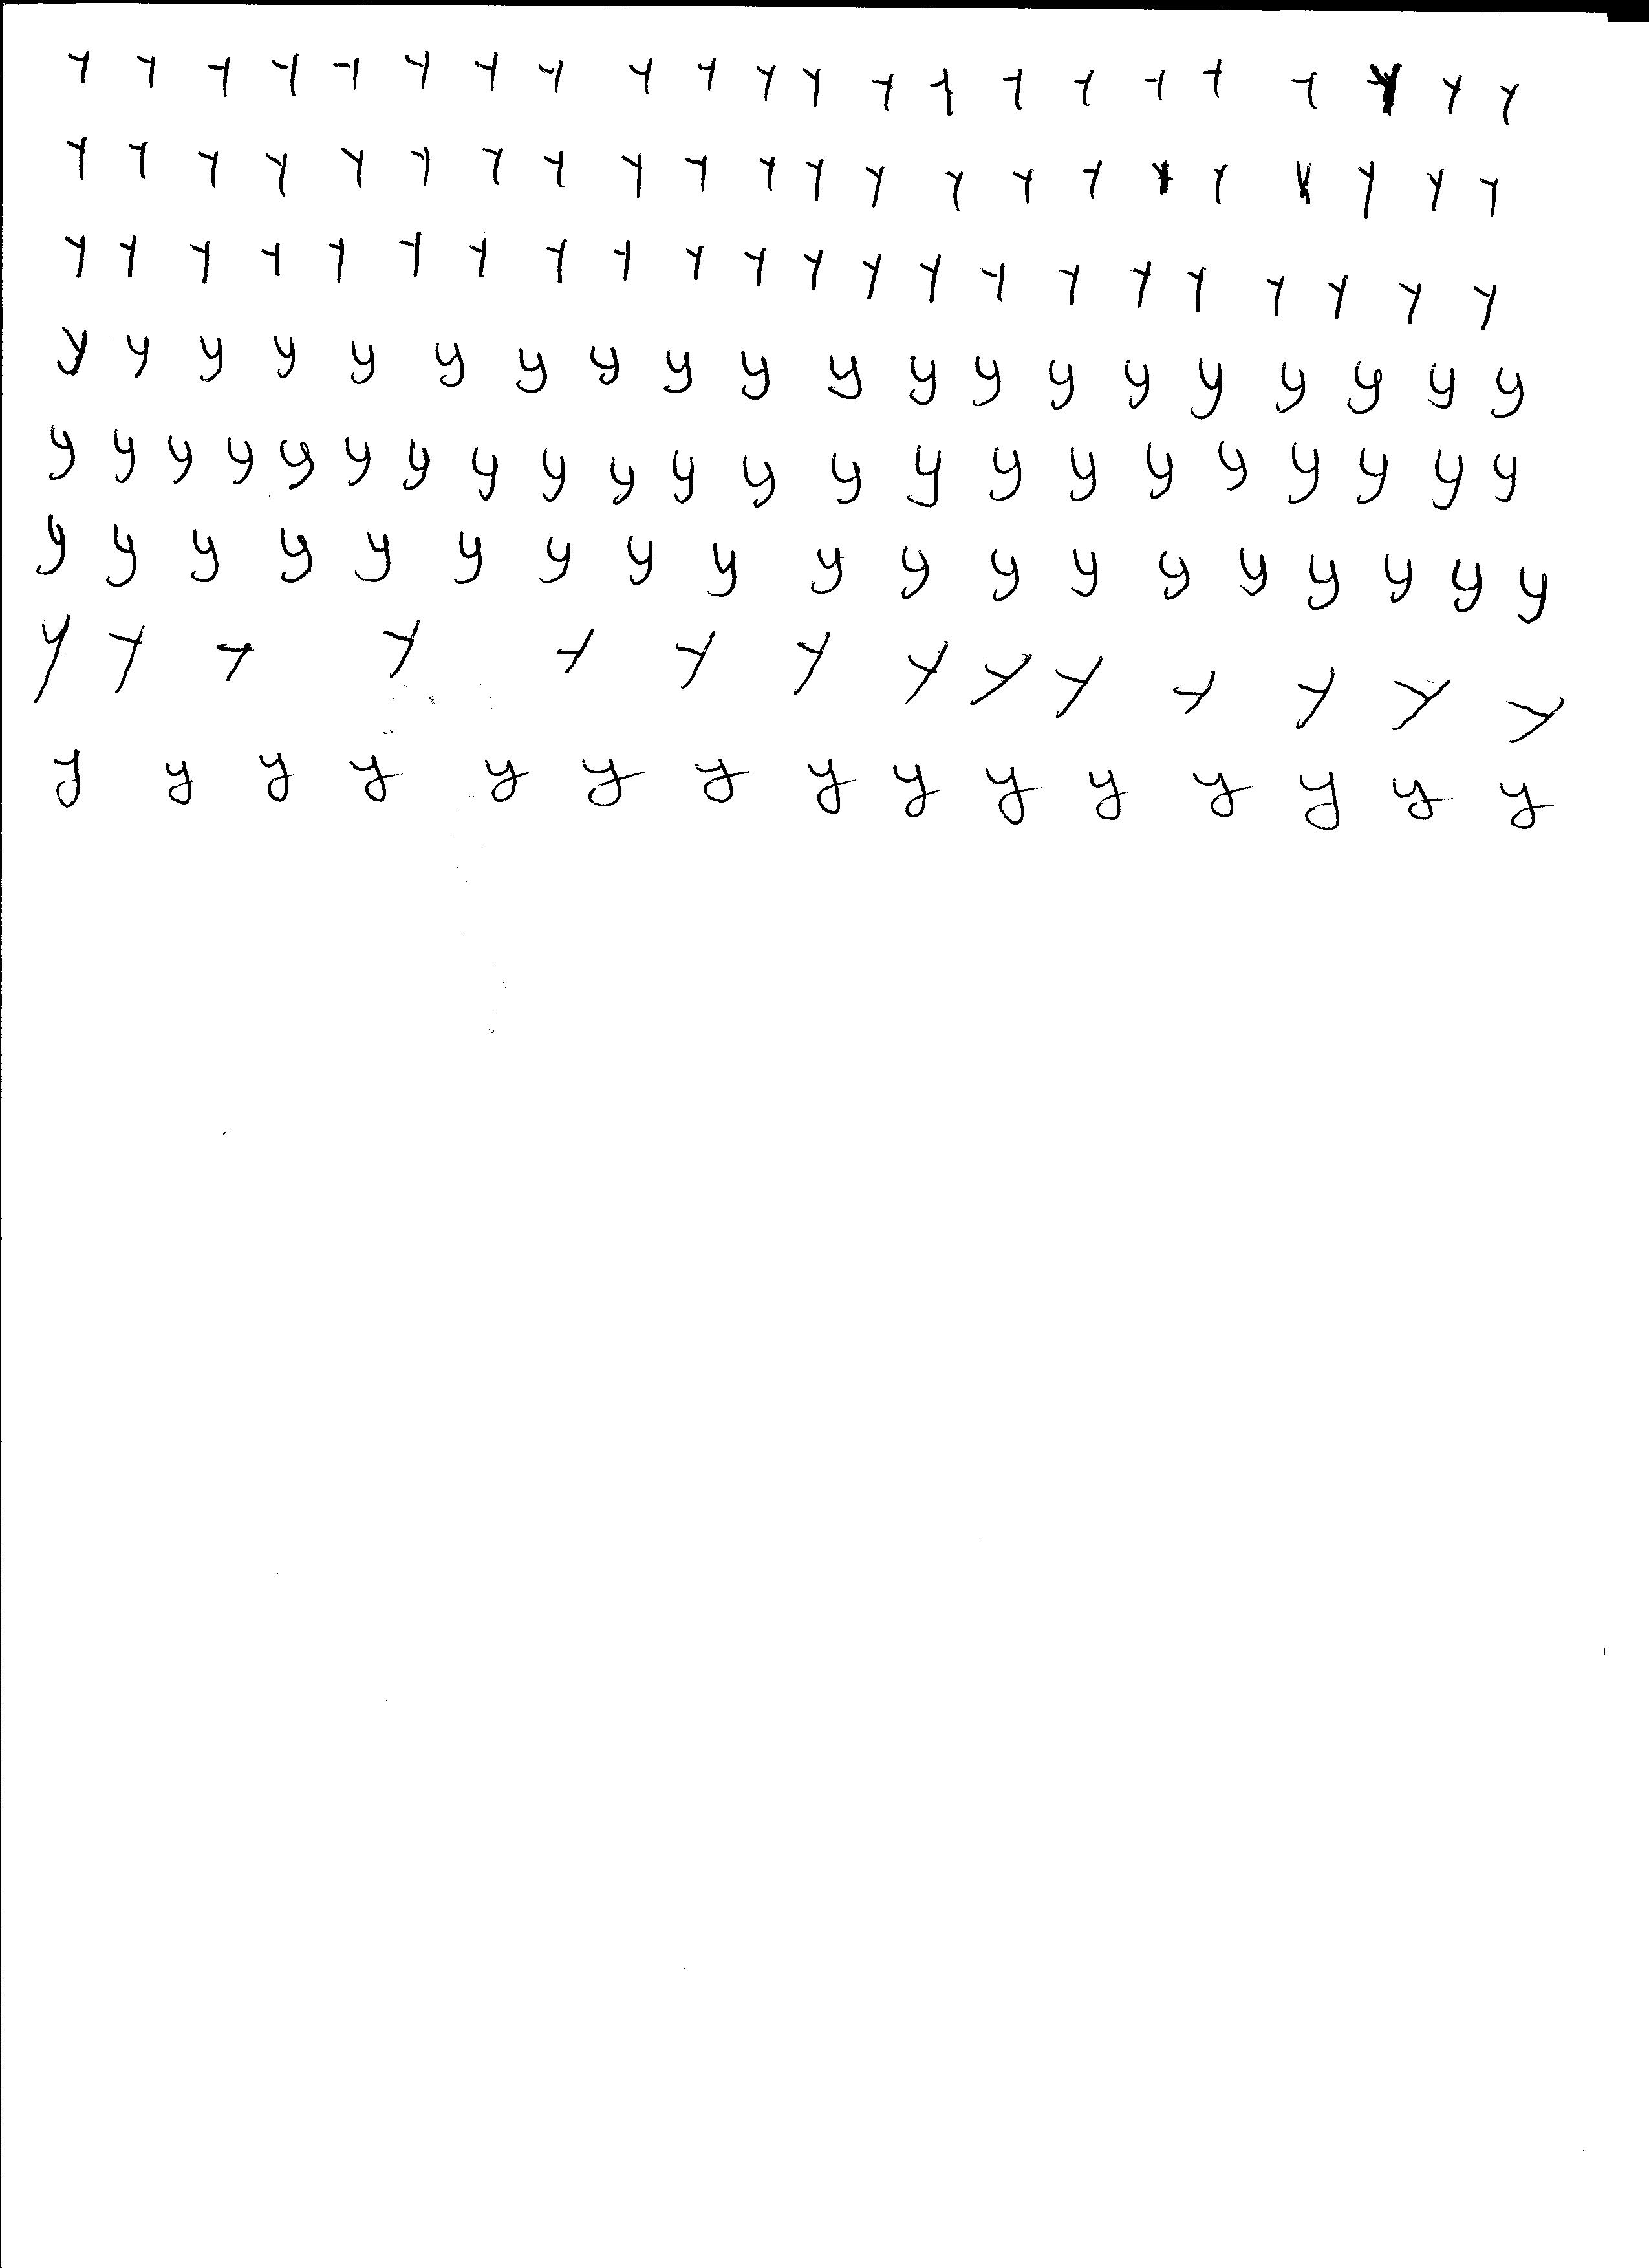 y y y y y y y y y y y y y y y y y y y y y y
y y y y y y y y y y y y y y y y y y y y y y
y y y y y y y y y y y y y y y y y y y y y y
y y y y y y y y y y y y y y y y y y y y
y y y y y y y y y y y y y y y y y y y y y y
y y y y y y y y y y y y y y y y y y y
y y y y y y y y y y y y y y
y y y y y y y y y y y y y y y